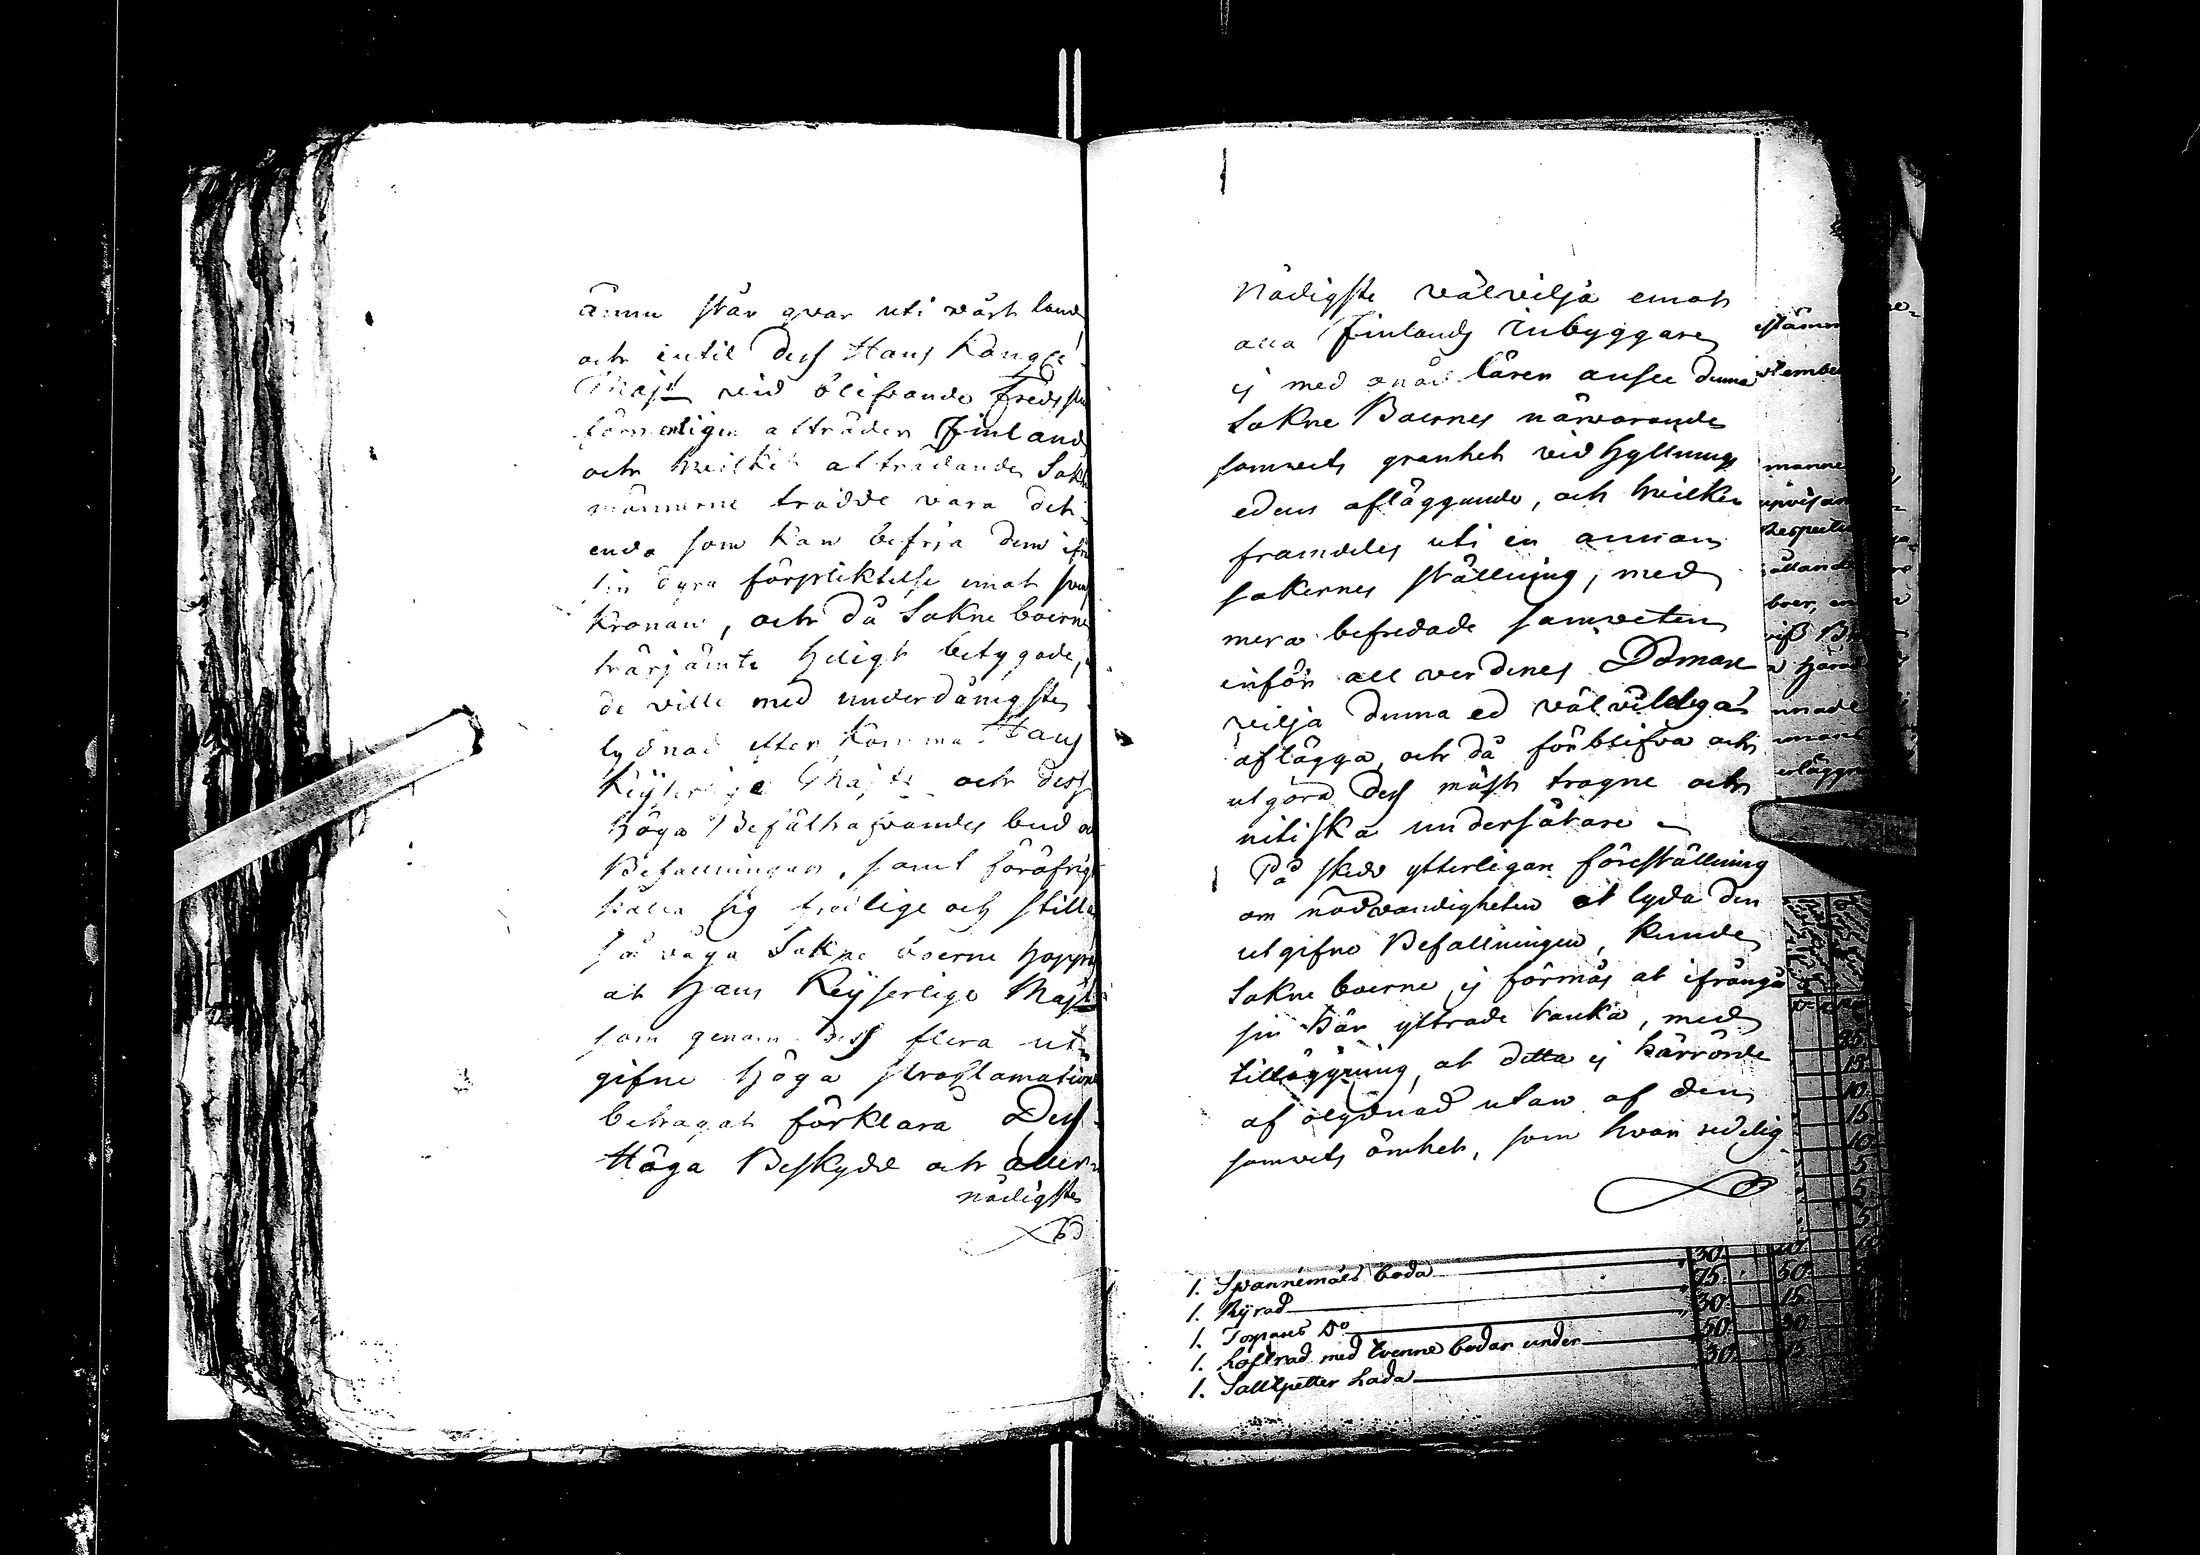 ännu står qvar uti vårt land
och intil dess Hans Kongl.
Majt vid blifvande Freds slu
förmenligen afträder Finland
och hvilket afträdande Sokn
männerne trodde vara det
enda som kan befria dem ifr
sin dyra förpliktelse emot
Kronan, och då Sokne boerne
härjämte heligt betygade,
de ville med underdånigste
lydnad efter komma Hans
Keijserlige Majts och dess
höga Befälhafvandes bud o
Befallningar, samt föröfrigt
hålla sig fredlige och stilla
så våga Sokne boerne hoppas
at Hans Keijserlige Majt
som genom dess flera ut-
gifne höga proklamationer
behagat förklara Dess
Höga Beskydd och aller-
nådigste
Nådigste välvilja emot
alla Finlands Inbyggare
ej med onåd lären ansee denna
Sokne Boernes närvarande
samvets granhet vid hyllnings
edens afläggande, och hvilken
framdeles uti en annan
sakernes ställning, med
mera befredade samveten
inför all verdenes Domare
vilja denna ed välvilligast
aflägga, och då förblifva och
utgöra dess mäst trogne och
nitiska undersåtare
På skedd ytterligare föreställning
om nödvändigheten at lyda den
utgifne Befallningen, kunde
Sokne boerne ej förmås at ifrångå
sin här yttrade tanka, med
tilläggning, at detta ej härrörde
af olydnad utan af den
samvets ömhet, som hvar redelig
1. Spannemåls boda
1. Kijrad
1. Torpares Do
1. Loftrad med tvenne bodar under
1. Salltpetter Lada
50.
75.
30.
50.
30.
50.
15.